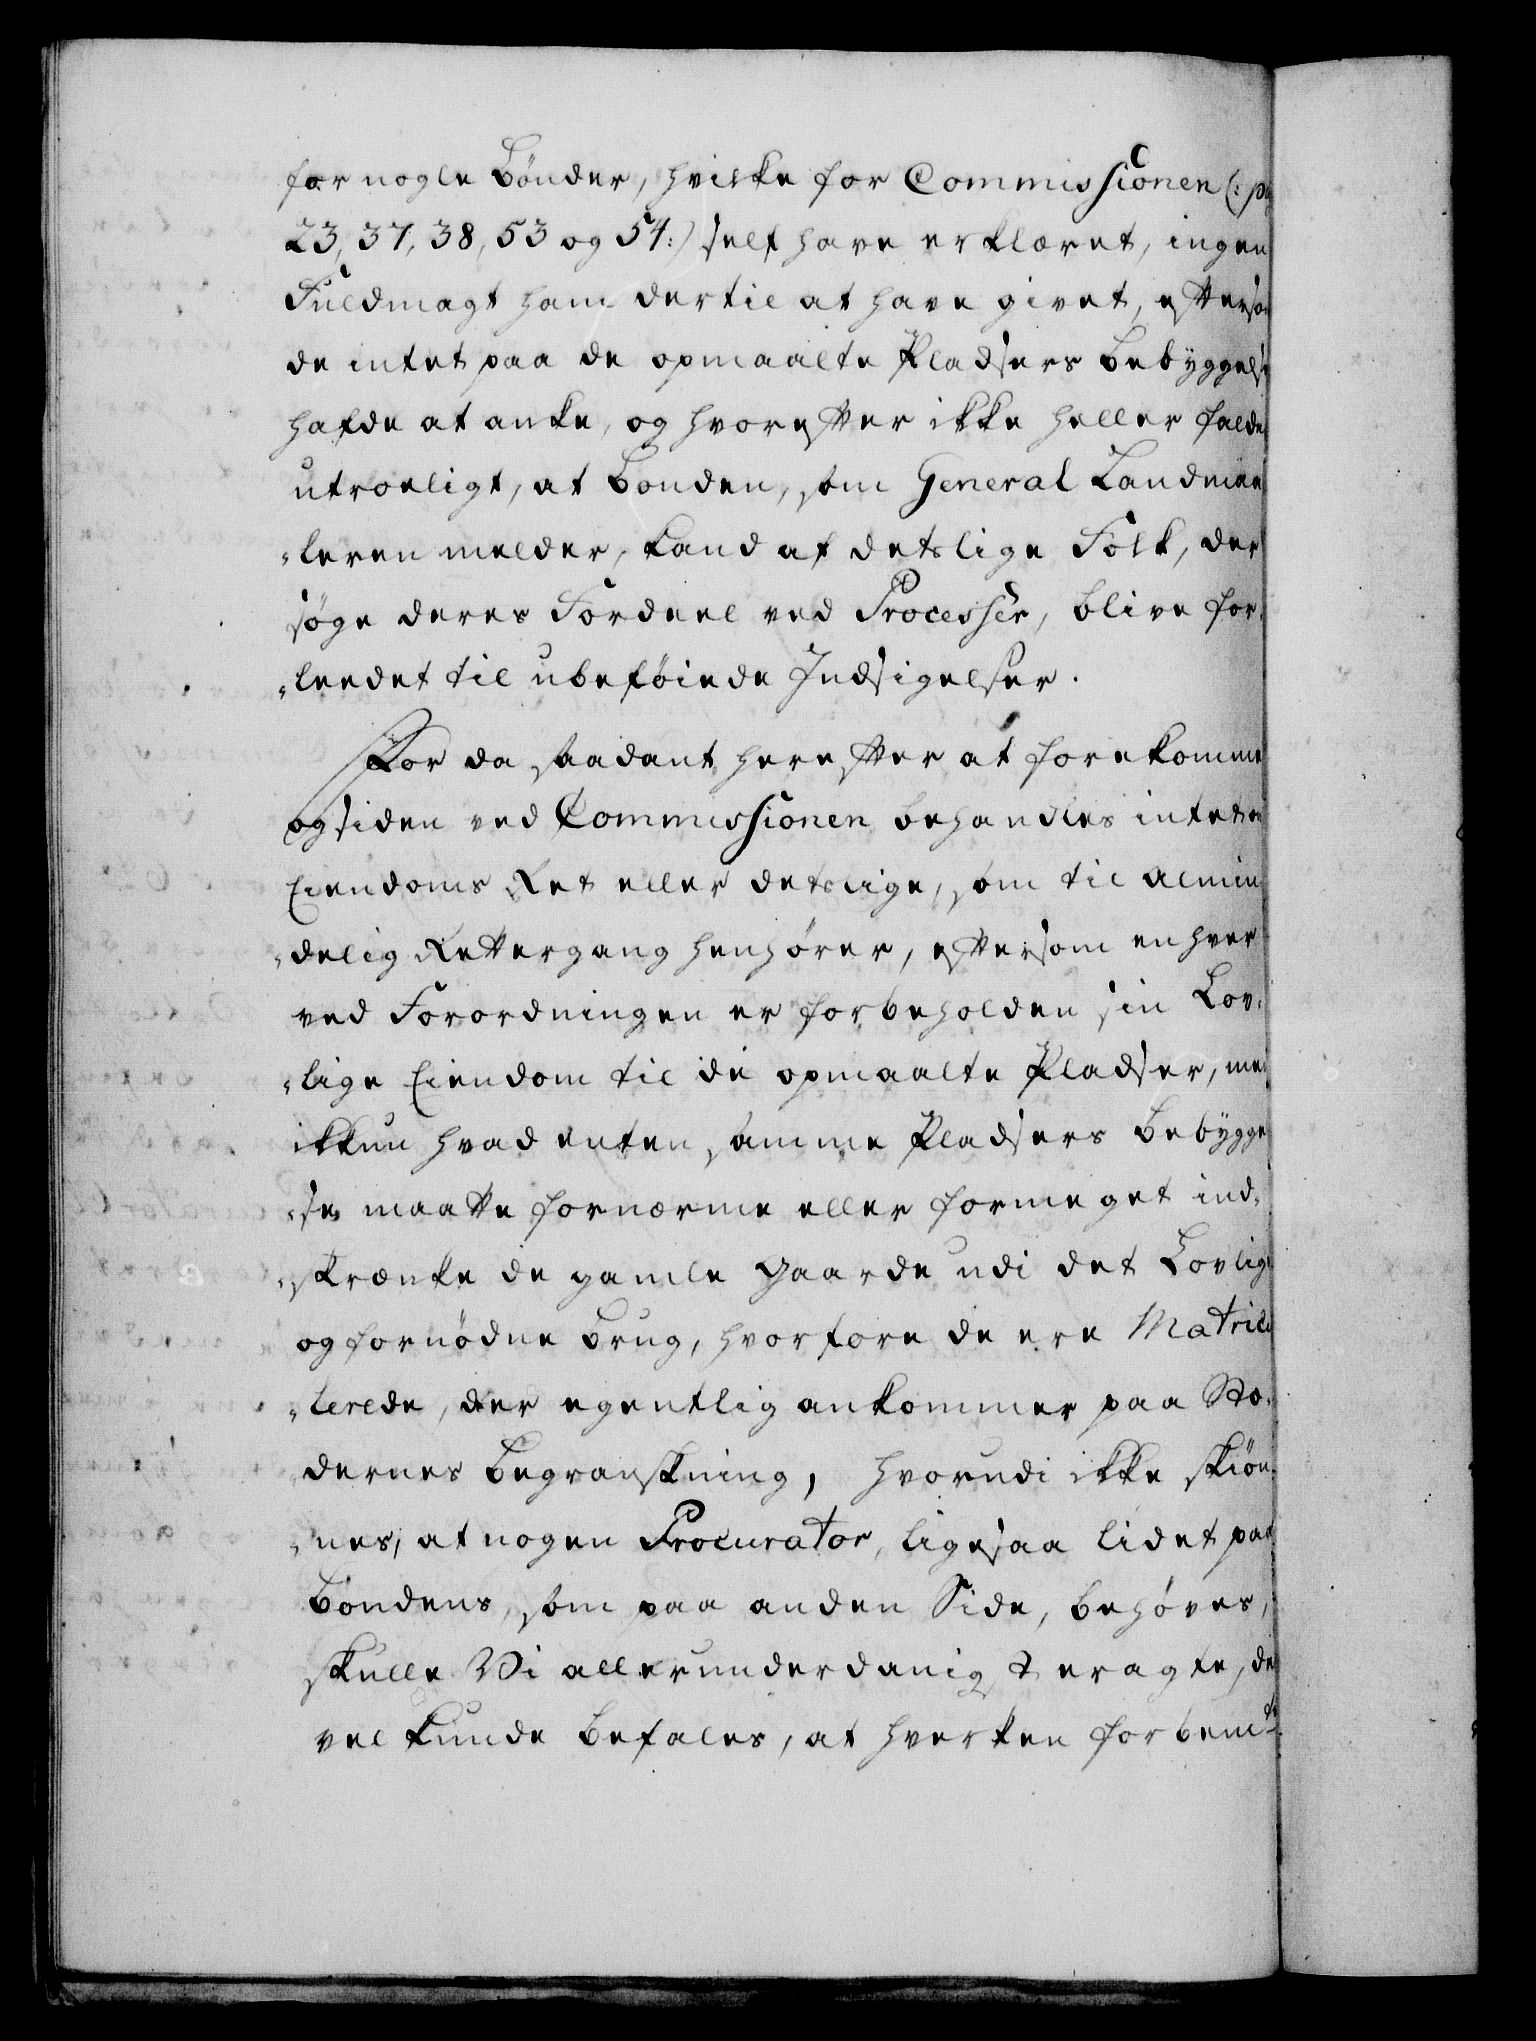 for nogle Bönder, hvilke for Commissionen (: pag
23, 37, 38, 53 og 54:) self have erklæret, ingen
Fuldmagt ham dertil at have givet, eftersom
de intet paa de opmaalte Pladsers Bebyggelse
hafde at anke, og hvorefter ikke heller falder
utroeligt, at Bonden, som General Landmaa
„leren melder, kand af detslige Folk, der
söge deres Fordeel ved Processer, blive for„
„leedet til ubeföiede Indsigelser.
For da saadant herefter at forekomme
og siden ved Commissionen behandles intet om
Eiendoms Ret eller detslige, som til almin
„delig Rettergang henhörer, eftersom en hver
ved Forordningen er forbeholden sin Lov„
„lige Eiendom til de opmaalte Pladser, men
ikkun hvad enten samme Pladsers Bebygge
„se maatte fornærme eller formeget ind„
„skrænke de gamle Gaarde udi det Lovlige
og fornödne Brug, hvorfore de ere Matricu
„lerede, der egentlig ankommer paa Stæ„
dernes Begranskning, hvorudi ikke skiön„
„nes, at nogen Procurator, ligesaa lidet paa
Bondens, som paa anden Side, behöves,
skulle Vi allerunderdanigst eragte, det
vel kunde befales, at hverken forbemte